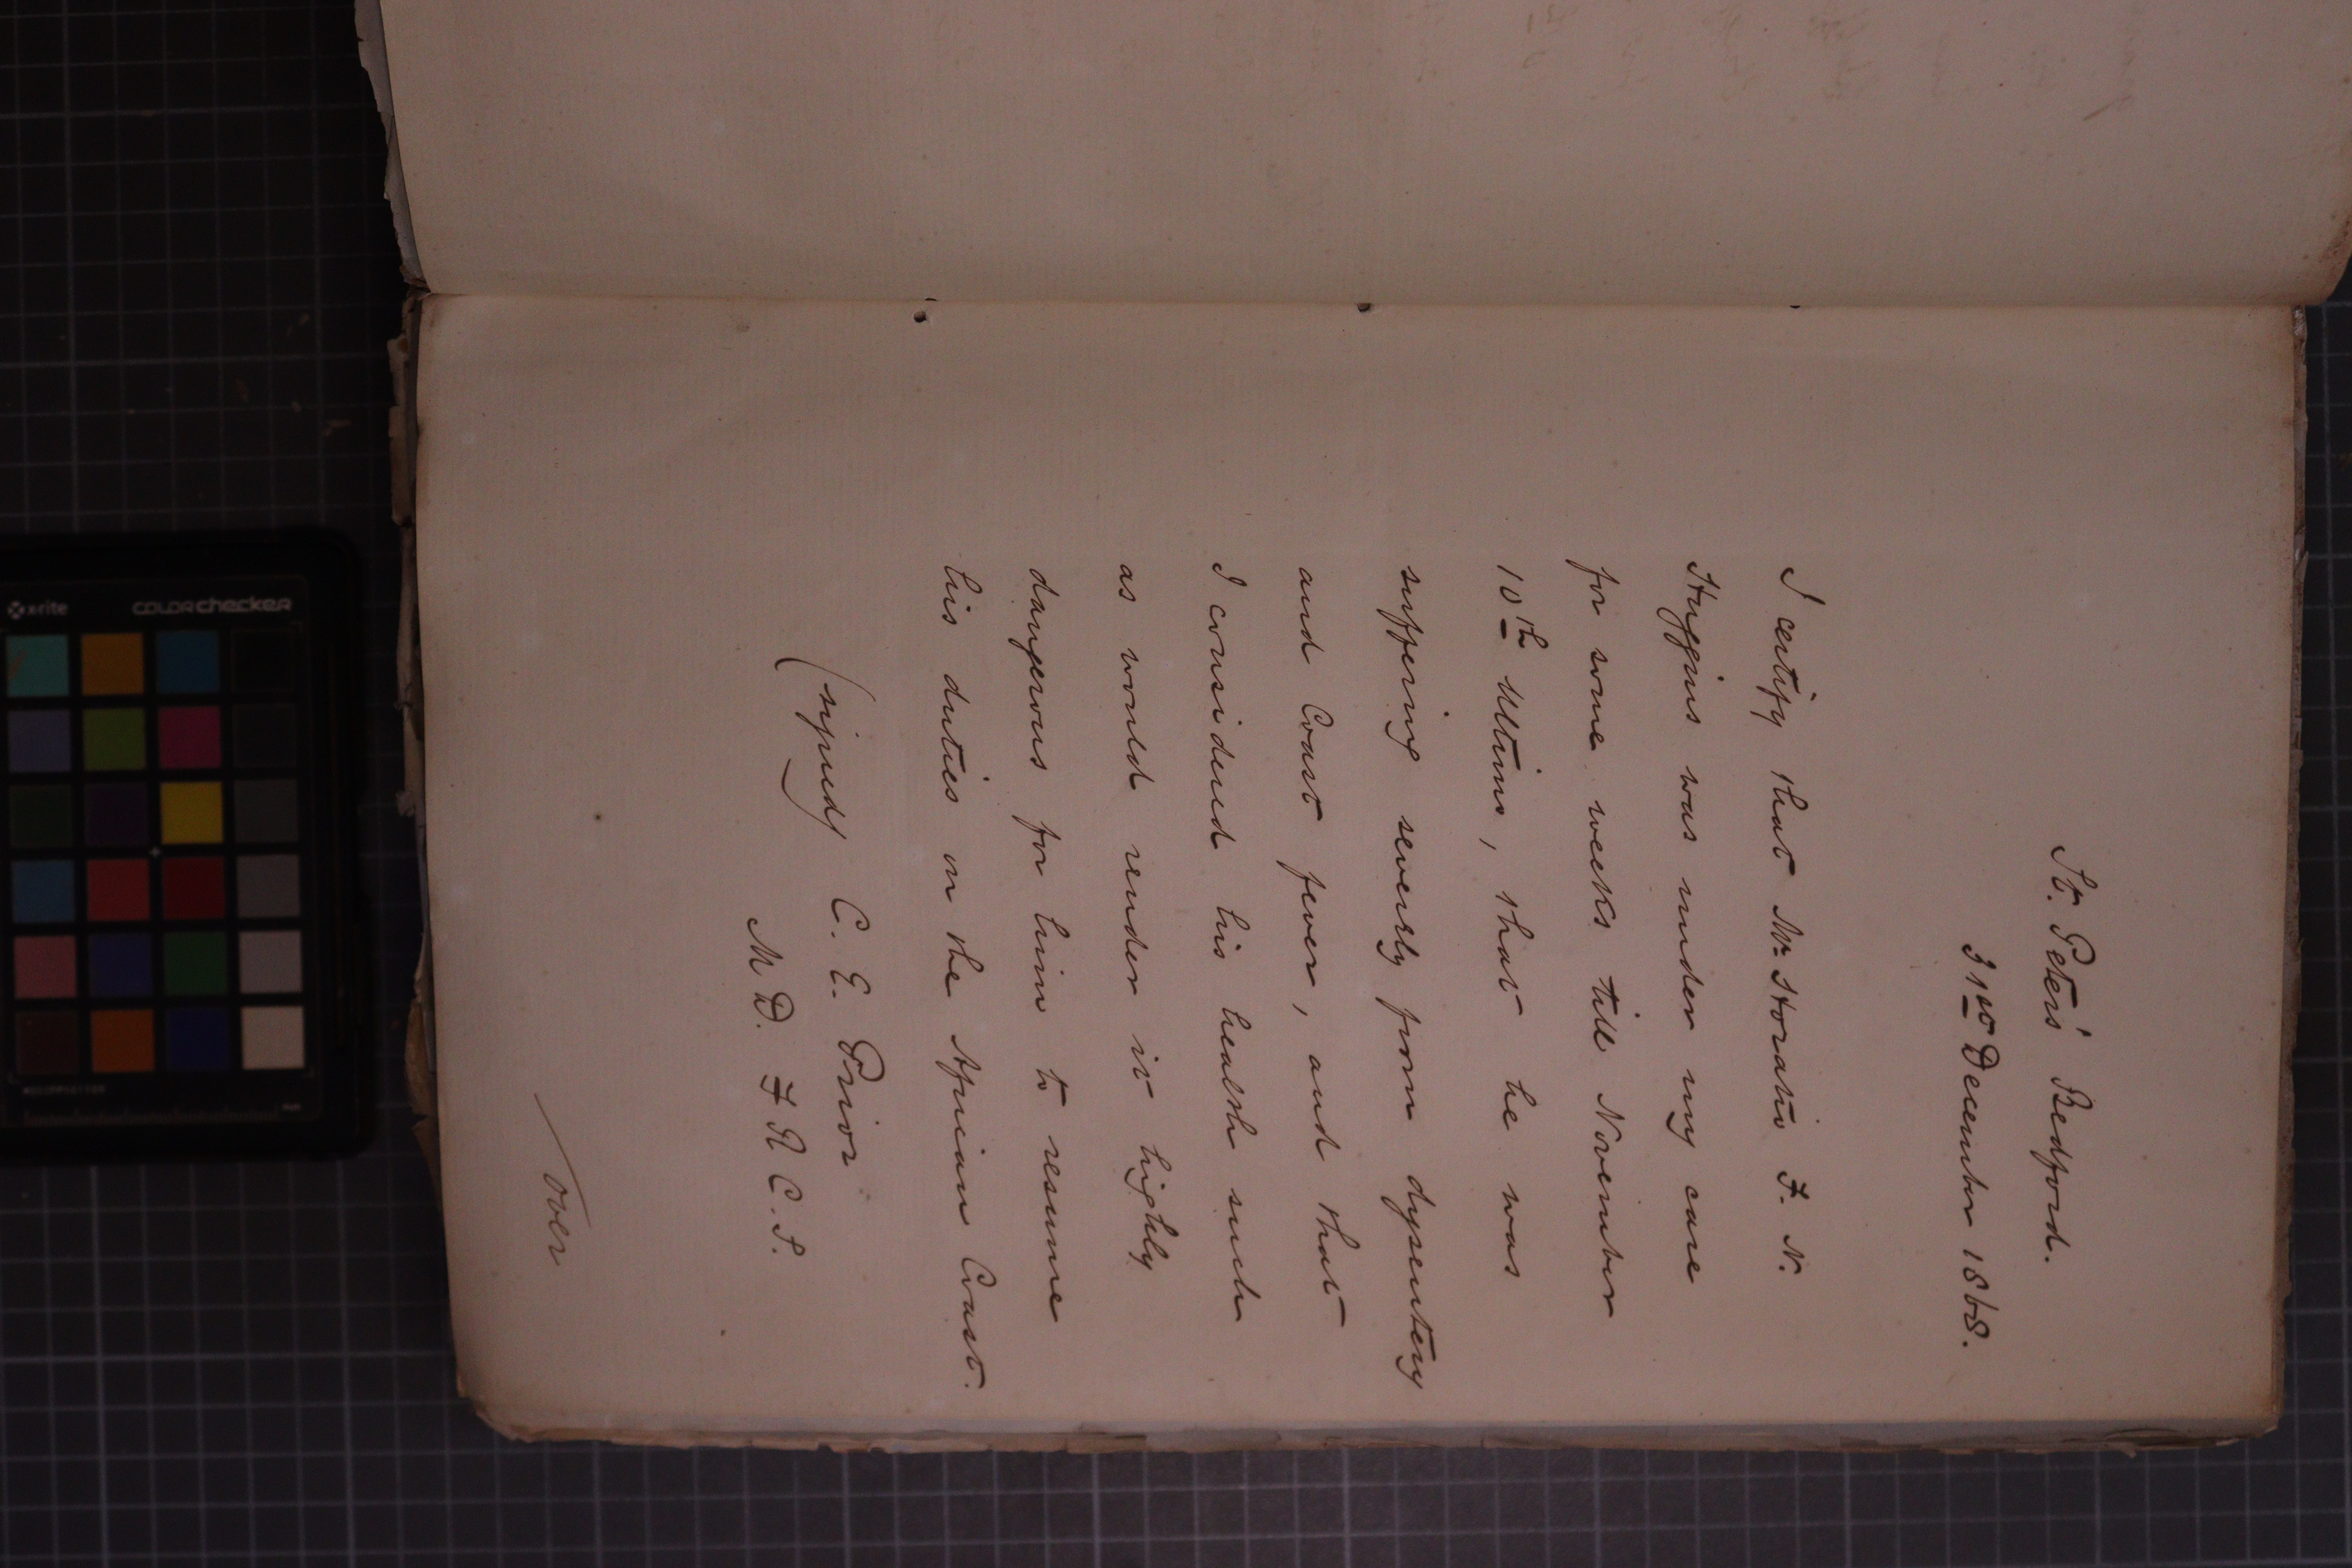 St. Peters' Bedford.
31st December 1868.
I certify that Mr Horatio F. N.
Huggins was under my care
for some weeks till November
10th Ultimo, that he was
suffering severely from dysentery
and Coast fever, and that
I considered his health such
as would render it highly
dangerous for him to resume
his duties on the African Coast.
(signed) C. E. Prior
M D. F R C. S.
over
x-rite
colorchecker